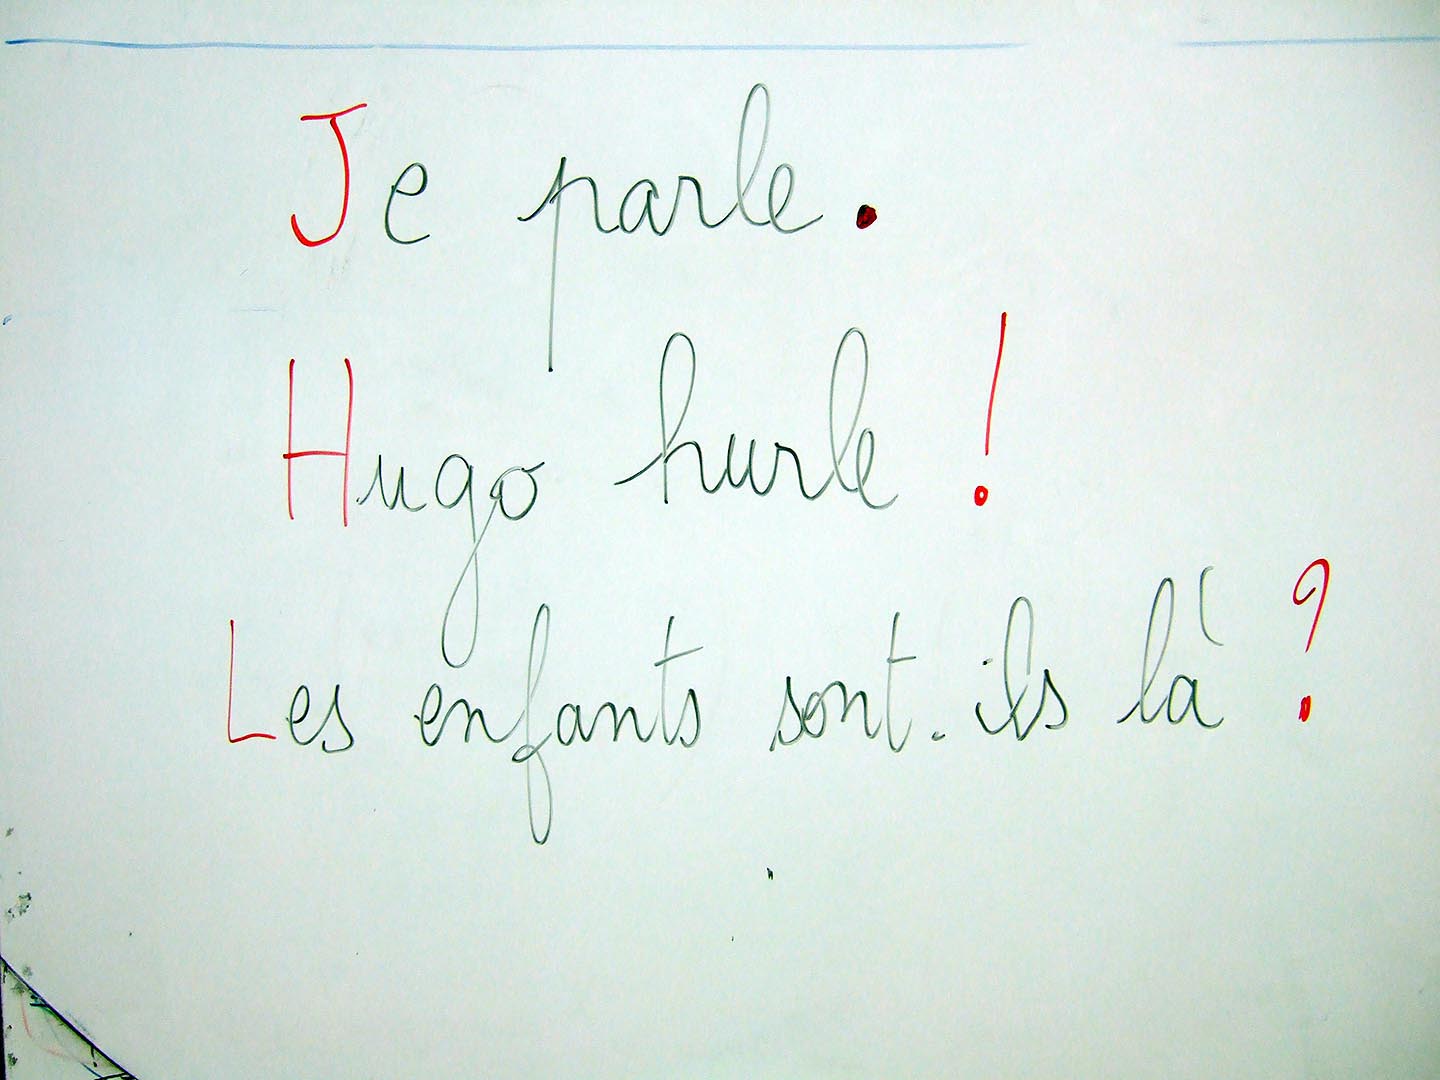 Je parle.
Hugo hurle !
Les enfants sont-ils là ?